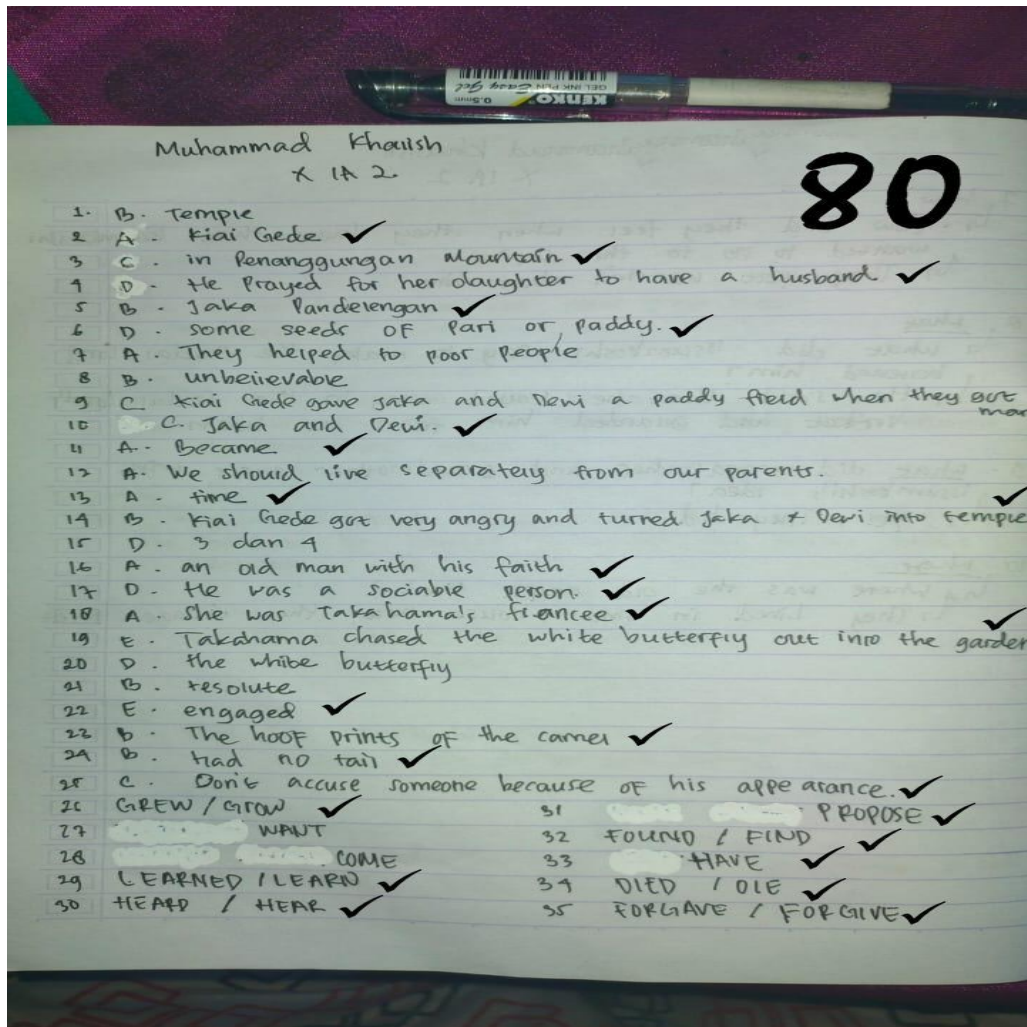 GEL INK PEN Easy Gel
0.5mm KENKO
Muhammad Kharish
X IA 2.
80
1. B. Temple
2 A. Kiai Gede ✓
3 C. in Penanggungan Mountain ✓
4 D. He Prayed for her daughter to have a husband ✓
5 B. Jaka Pandelengan ✓
6 D. some seeds OF Pari or paddy. ✓
7 A They helped to poor people
8 B. unbelievable
9 C Kiai Gede gave Jaka and Dewi a paddy field when they got mar
10 C. Jaka and Dewi. ✓
11 A. Became ✓
12 A. We should live separately from our parents.
13 A. time ✓
14 B. Kiai Gede got very angry and turned Jaka & Dewi into temple ✓
15 D. 3 dan 4
16 A. an old man with his faith ✓
17 D. He was a sociable person. ✓
18 A. She was Takahama's fiancee ✓
19 E. Takahama chased the white butterfly out into the garden ✓
20 D. the white butterfly
21 B. resolute
22 E. engaged ✓
23 B. The hoof prints of the camel ✓
24 B. had no tail ✓
25 C. Don't accuse someone because of his appearance. ✓
26 GREW / GROW ✓ 31 PROPOSE ✓
27 WANT 32 FOUND / FIND ✓
28 COME 33 HAVE ✓
29 LEARNED / LEARN ✓ 34 DIED / DIE ✓
30 HEARD / HEAR ✓ 35 FORGAVE / FORGIVE ✓